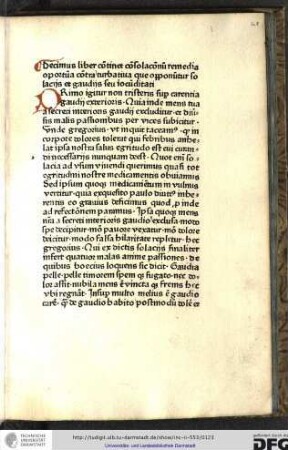 Decimus liber cōtinet cōsolacōnū remedia
oportūa cōtra turbatiua que opponūtur so
lacijs et gaudijs seu iocūditati
PRimo igitur non tristeris sup carentia
gaudij exterioris. Quia inde mens tua
a secreti interioris gaudio excluditur et
malis passionibus per vices subicitur.
Vnde gregorius. vt inquit taceam q in
corpore dolores tolerat qui febribus anhe
lat ipsa nostra salus egritudo est cui curan
di necessarijs nunquam deest. Quot em so
lacia ad vsum viuendi querimus quasi tot
egritudini nostre medicamentis obuiamus
Sed ipsum quoqs medicamētum in vulnus
vertitur. quia exquesito paulo diutius inhe
rentes eo grauius deficimus quod prouide
ad refectionem paramus. Ipsa quoqs mens
nra a secreti interioris gaudio exclusa modo
spe decipitur. modo pauore vexatur. modo dolore
deicitur. modo falsa hilaritate repletur. hec
gregorius. Qui ex dictis solacijs finaliter
infert quatuor malas anime passiones. de
quibus boecius loquens sic dicit. Gaudia
pelle. pelle timorem spem qs fugato. nec do
lor assit. nubila mens ē vincta qs frenis hec
vbi regnāt. Insup multo melius ē gaudio
carē. q de gaudio habito postmodū dolē et
TECHNISCHE UNIVERSITÄT DARMSTADT
http://tudigit.ulb.tu-darmstadt.de/show/inc-ii-553/0125
Universitäts- und Landesbibliothek Darmstadt
DFG